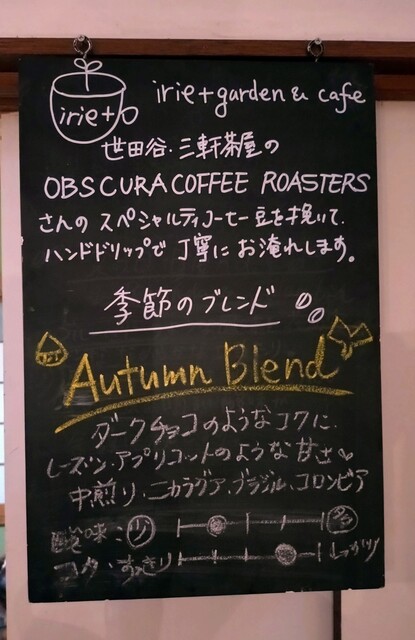 irie+
irie+garden & cafe
世田谷・三軒茶屋の
OBSCURA COFFEE ROASTERS
さんの スペシャルティコーヒー豆を挽いて、
ハンドドリップで 丁寧に お淹れします。
季節のブレンド
Autumn Blend
ダークチョコのようなコクに、
レーズン・アプリコットのような甘さ
中煎り・ニカラグア、ブラジル、コロンビア
酸味: 少 多
コク・すっきり しっかり